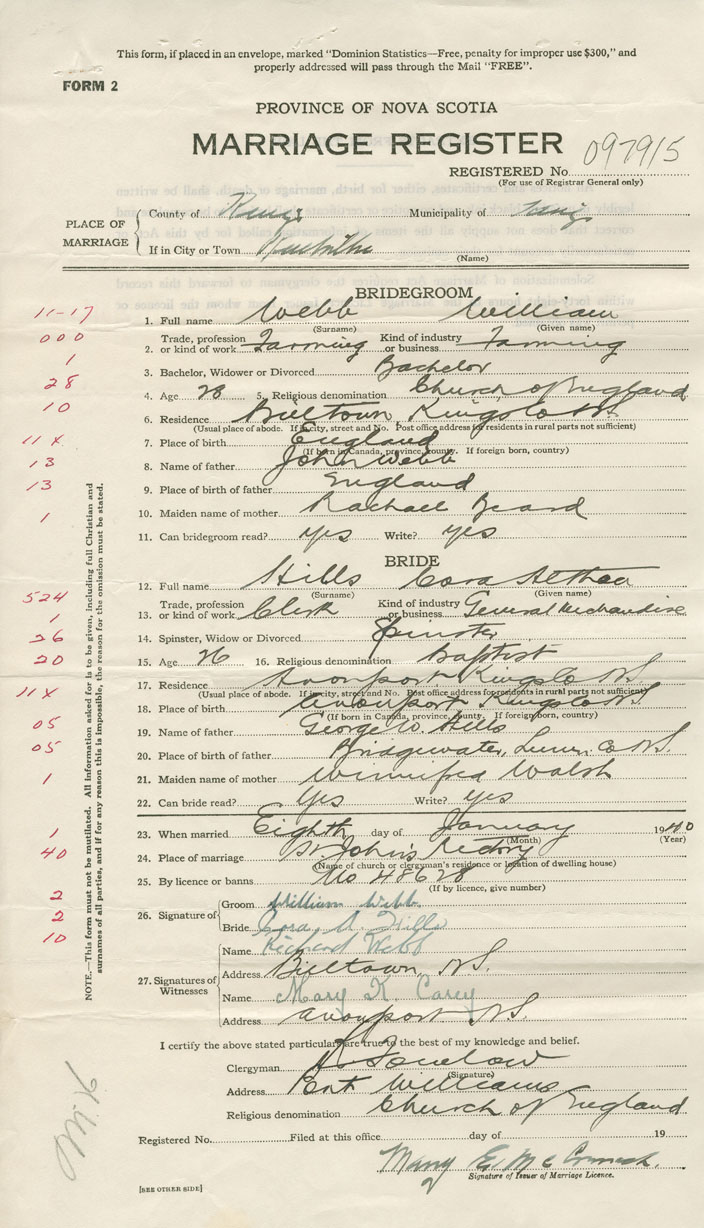 This form, if placed in an envelope, marked "Dominion Statistics—Free, penalty for improper use $300," and
properly addressed will pass through the Mail "FREE".
FORM 2
PROVINCE OF NOVA SCOTIA
MARRIAGE REGISTER 097915
REGISTERED No.
(For use of Registrar General only)
PLACE OF MARRIAGE
County of Kings Municipality of Kings
If in City or Town
(Name)
BRIDEGROOM
11-17 1. Full name Webb William
(Surname) (Given name)
000 2. Trade, profession or kind of work Farming Kind of industry or business Farming
1 3. Bachelor, Widower or Divorced Bachelor
28 4. Age 28 5. Religious denomination Church of England
10 6. Residence Billtown, Kings Co N.S.
(Usual place of abode. If in city, street and No. Post office address for residents in rural parts not sufficient)
11 x 7. Place of birth England
(If born in Canada, province, county. If foreign born, country)
13 8. Name of father John Webb
13 9. Place of birth of father England
1 10. Maiden name of mother Rachael Beard
11. Can bridegroom read? yes Write? yes
BRIDE
12. Full name Hills Cora Althea
(Surname) (Given name)
524 13. Trade, profession or kind of work Clerk Kind of industry or business General Merchandise
1 14. Spinster, Widow or Divorced Spinster
26 15. Age 26 16. Religious denomination Baptist
20 17. Residence Avonport Kings Co N.S.
(Usual place of abode. If in city, street and No. Post office address for residents in rural parts not sufficient)
11 x 18. Place of birth Avonport Kings Co N.S.
(If born in Canada, province, county. If foreign born, country)
05 19. Name of father George W. Hills
05 20. Place of birth of father Bridgewater, Lunen. Co N.S.
1 21. Maiden name of mother Winnifred Walsh
22. Can bride read? Yes Write? yes
1 23. When married Eighth day of January 1940
(Month) (Year)
40 24. Place of marriage St John's Rectory
(Name of church or clergyman's residence or location of dwelling house)
25. By licence or banns No 48628
(If by licence, give number)
2 26. Signature of Groom William Webb
2 Bride Cora A. Hills
10 27. Signatures of Witnesses Name Richard Webb
Address Billtown, N.S.
Name Mary K. Carey
Address Avonport N.S.
I certify the above stated particulars are true to the best of my knowledge and belief.
Clergyman
(Signature)
Address Port Williams
Religious denomination Church of England
Registered No. Filed at this office day of 19
Mary E. McCormack.
Signature of Issuer of Marriage Licence.
[SEE OTHER SIDE]
NOTE.—This form must not be mutilated. All information asked for is to be given, including full Christian and
surnames of all parties, and if for any reason this is impossible, the reason for the omission must be stated.